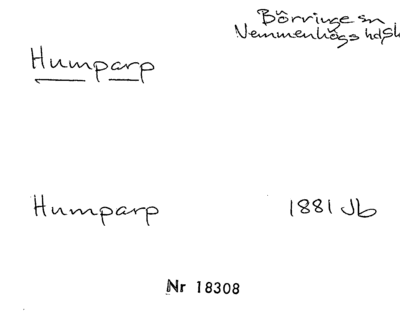 Börringe sn
Vemmenhögs hd, Sk
Humparp
Humparp 1881 Jb
Nr 18308